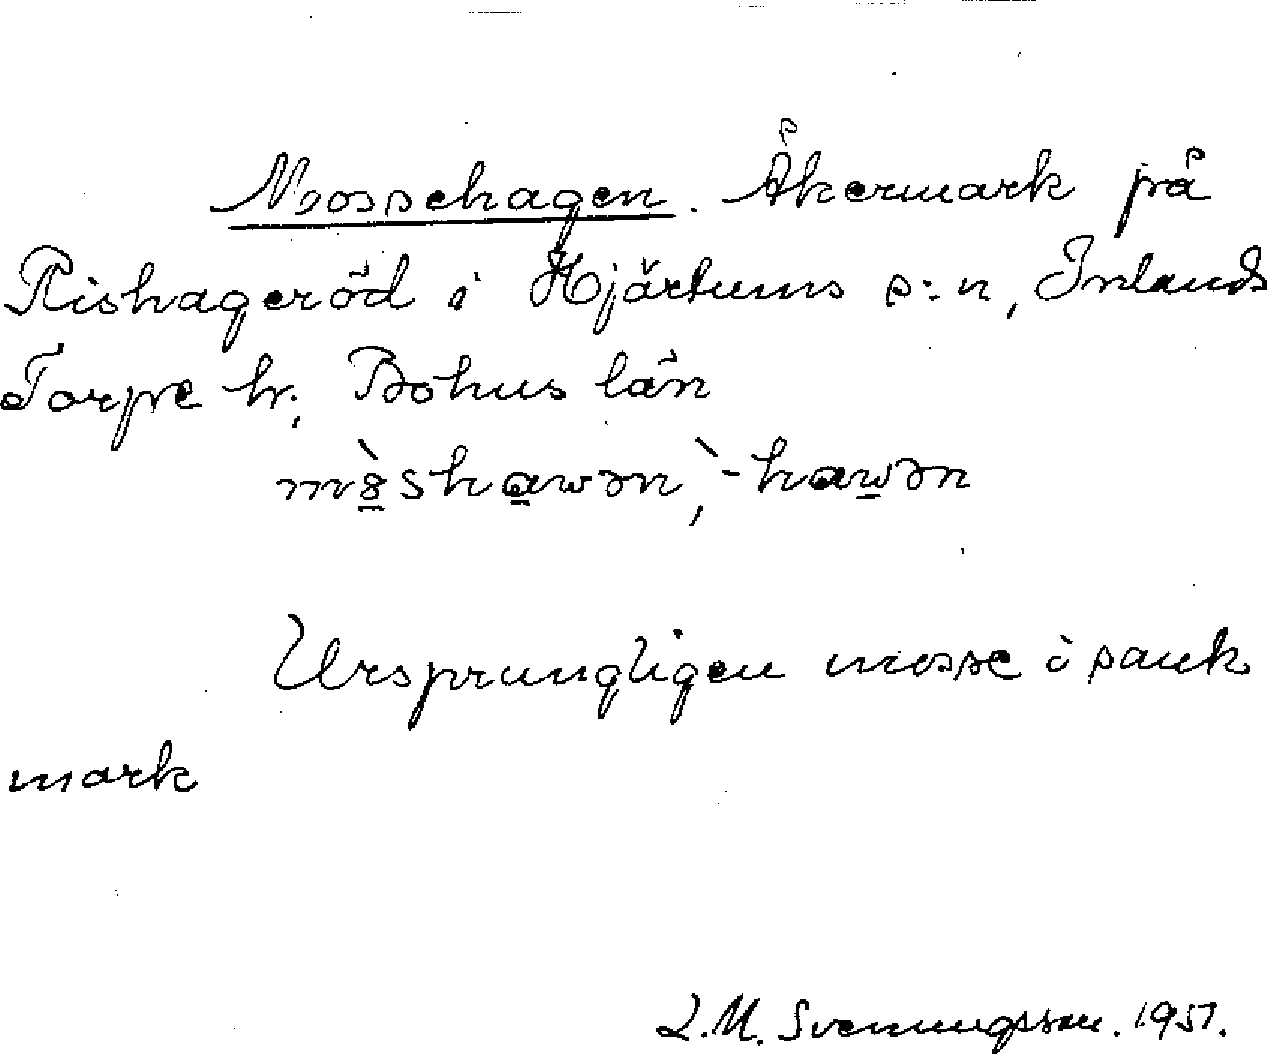 Mossehagen. Åkermark på
Rishageröd i Hjärtums s:n, Inlands
Torpe hr, Bohus län
Ursprungligen mosse i sank
mark
L.M. Svenungsson. 1951.